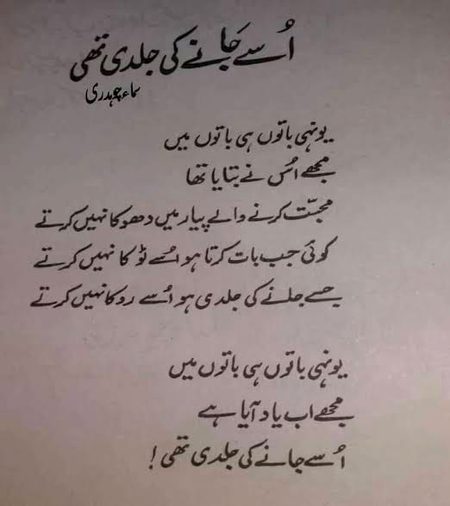 اُسے جَانے کی جلدی تھی
سماء چوہدری
یونہی باتوں ہی باتوں میں
مجھے اُس نے بتایا تھا
محبّت کرنے والے پیار میں دھوکا نہیں کرتے
کوئی جب بات کرتا ہو اُسے ٹوکا نہیں کرتے
جسے جانے کی جلدی ہو اُسے روکا نہیں کرتے
یونہی باتوں ہی باتوں میں
مجھے اب یاد آیا ہے
اُسے جانے کی جلدی تھی!